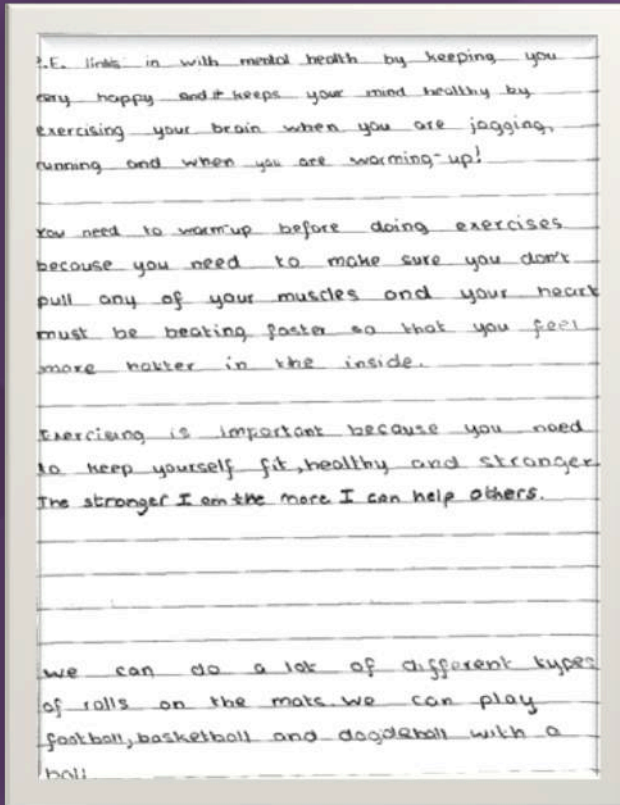 P.E. links in with mental health by keeping you
very happy and it keeps your mind healthy by
exercising your brain when you are jogging,
running and when you are warming-up!
You need to warm-up before doing exercises
because you need to make sure you don't
pull any of your muscles and your heart
must be beating faster so that you feel
more hotter in the inside.
Exercising is important because you need
to keep yourself fit, healthy and stronger.
The stronger I am the more I can help others.
We can do a lot of different types
of rolls on the mats. We can play
football, basketball and dogdeball with a
ball